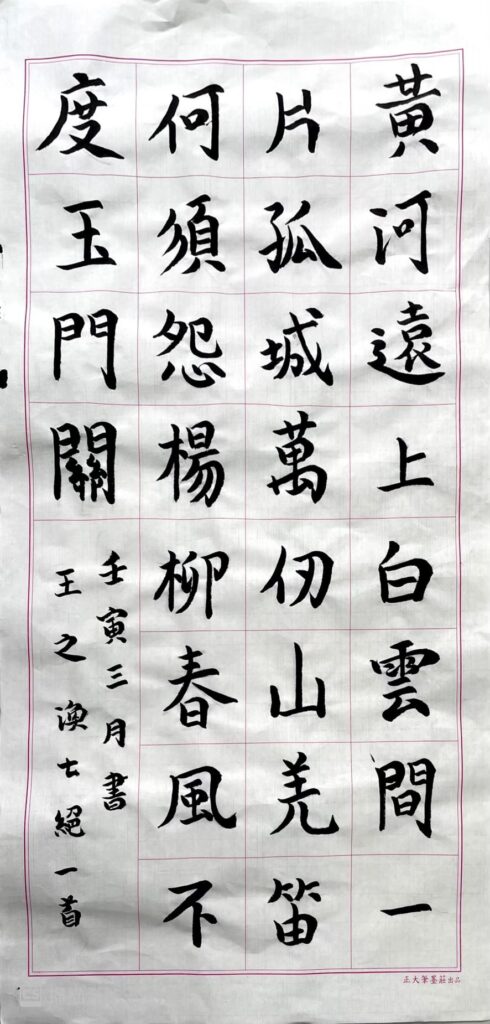 黃河遠上白雲間一
片孤城萬仞山羌笛
何須怨楊柳春風不
度玉門關
壬寅三月書
王之渙七絕一首
正大筆墨莊出品